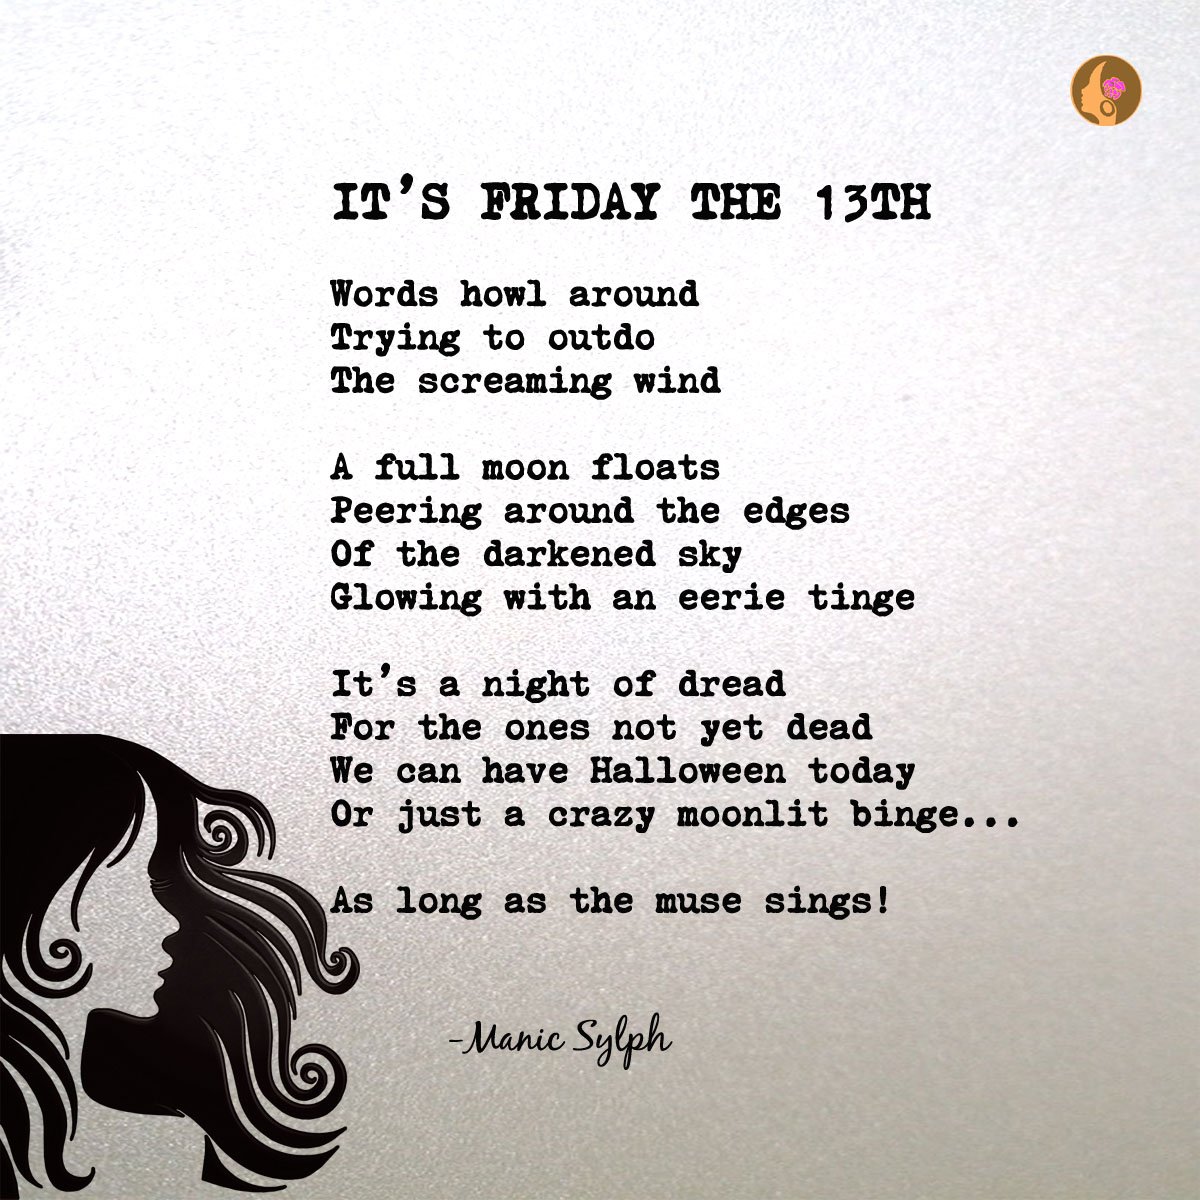 IT'S FRIDAY THE 13TH
Words howl around
Trying to outdo
The screaming wind
A full moon floats
Peering around the edges
Of the darkened sky
Glowing with an eerie tinge
It's a night of dread
For the ones not yet dead
We can have Halloween today
Or just a crazy moonlit binge...
As long as the muse sings!
-Manic Sylph